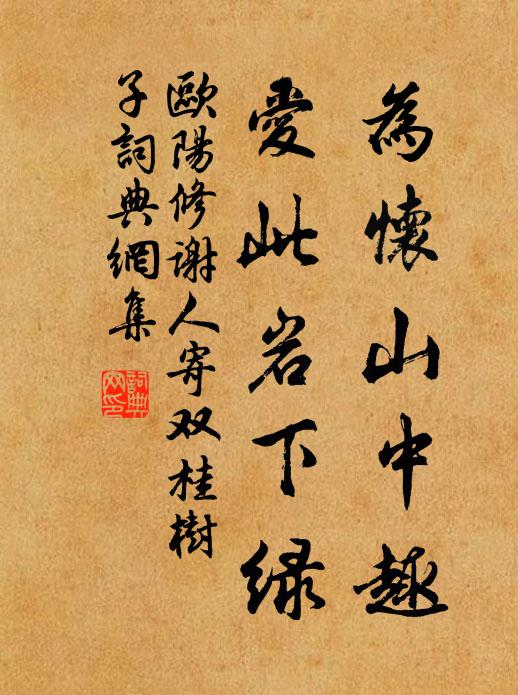 為懷山中趣
愛此岩下绿
歐陽修謝人寄双桂樹
子詞典網集
詞典網印